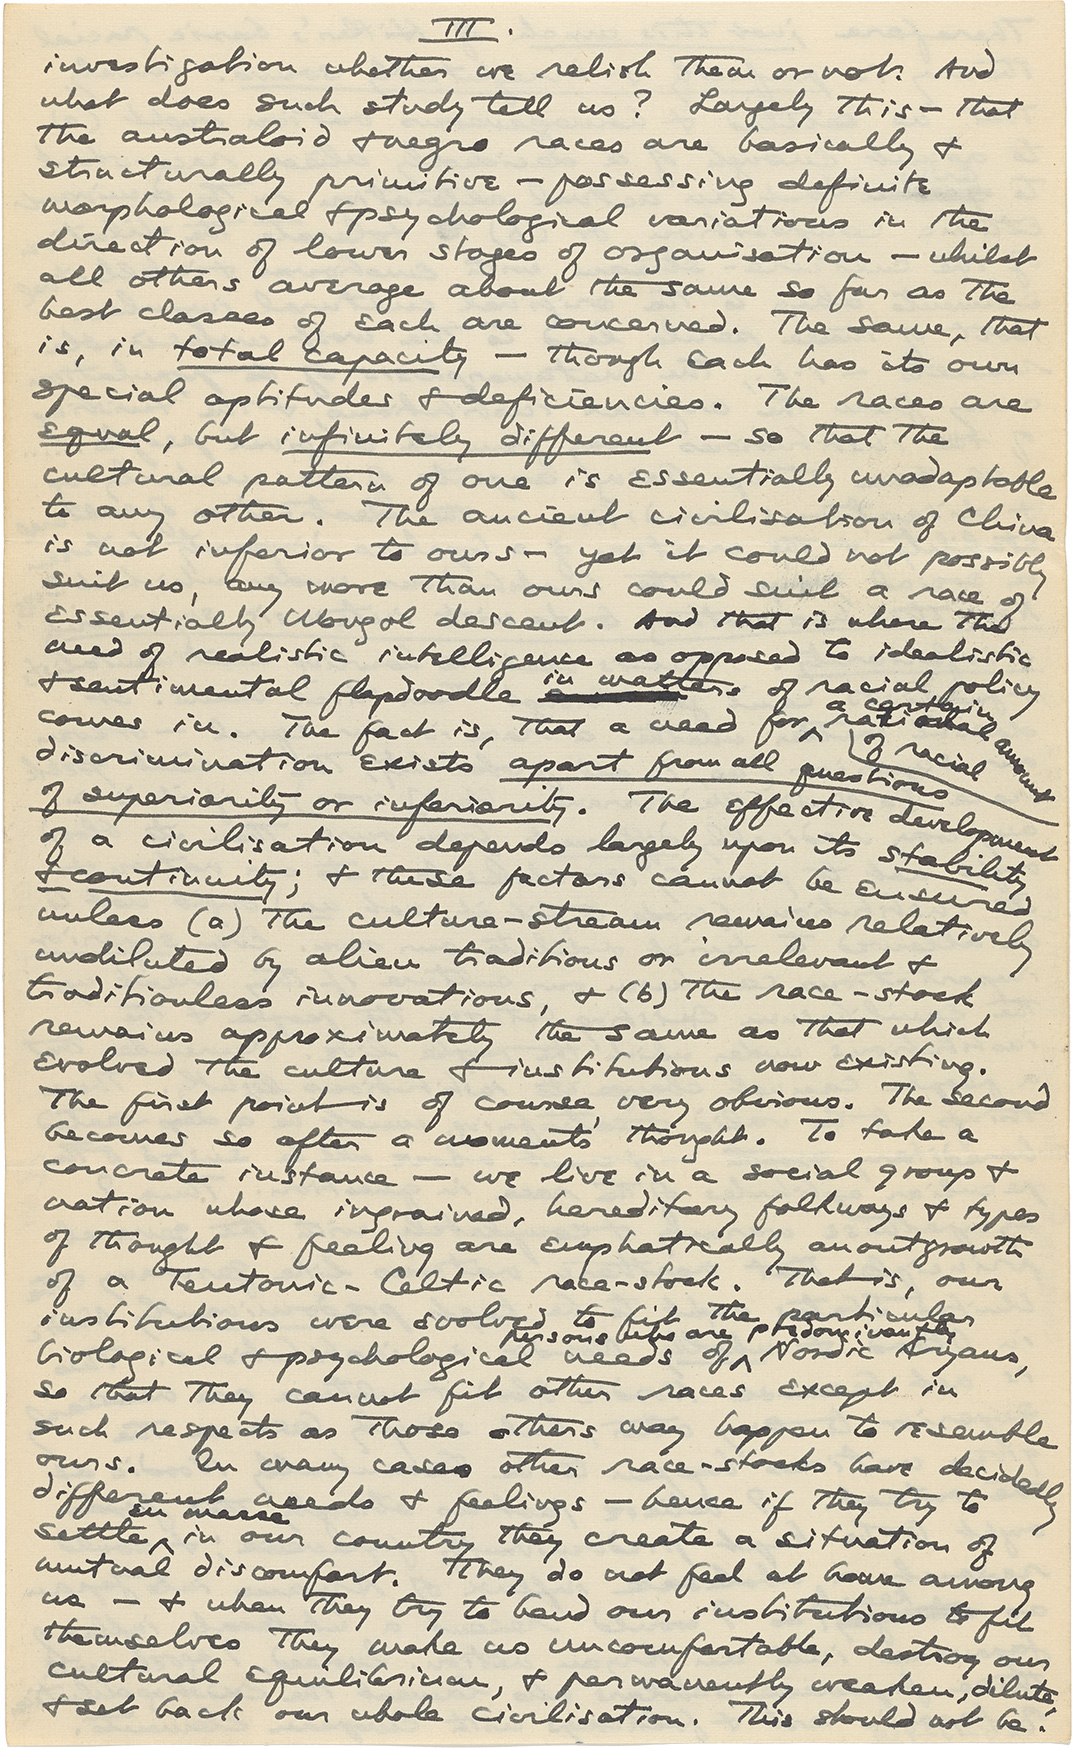 III.
investigation whether we relish them or not. And
what does such study tell us? Largely this — that
the australoid & negro races are basically &
structurally primitive — possessing definite
morphological & psychological variations in the
direction of lower stages of organisation — whilst
all others average about the same so far as the
best classes of each are concerned. The same, that
is, in total capacity — though each has its own
special aptitudes & deficiencies. The races are
equal, but infinitely different — so that the
cultural pattern of one is essentially unadaptable
to any other. The ancient civilisation of China
is not inferior to ours — yet it could not possibly
suit us, any more than ours could suit a race of
essentially Mongol descent. And that is where the
need of realistic intelligence as opposed to idealistic
& sentimental flapdoodle in matters of racial policy
comes in. The fact is, that a need for a certain rational amount of racial
discrimination exists apart from all questions
of superiority or inferiority. The effective development
of a civilisation depends largely upon its stability
& continuity; & these factors cannot be ensured
unless (a) the culture-stream remains relatively
undiluted by alien traditions or irrelevant &
traditionless innovations, & (b) the race-stock
remains approximately the same as that which
evolved the culture & institutions now existing.
The first point is of course very obvious. The second
becomes so after a moments' thought. To take a
concrete instance — we live in a social group &
nation whose ingrained, hereditary folkways & types
of thought & feeling are emphatically an outgrowth
of a Teutonic-Celtic race-stock. That is, our
institutions were evolved to fit the particular
biological & psychological needs of persons who are predominantly Nordic Aryans,
so that they cannot fit other races except in
such respects as those others may happen to resemble
ours. In many cases other race-stocks have decidedly
different needs & feelings — hence if they try to
settle en masse in our country they create a situation of
mutual discomfort. They do not feel at home among
us — & when they try to bend our institutions to fit
themselves they make us uncomfortable, destroy our
cultural equilibrium, & permanently weaken, dilute,
& set back our whole civilisation. This should not be.